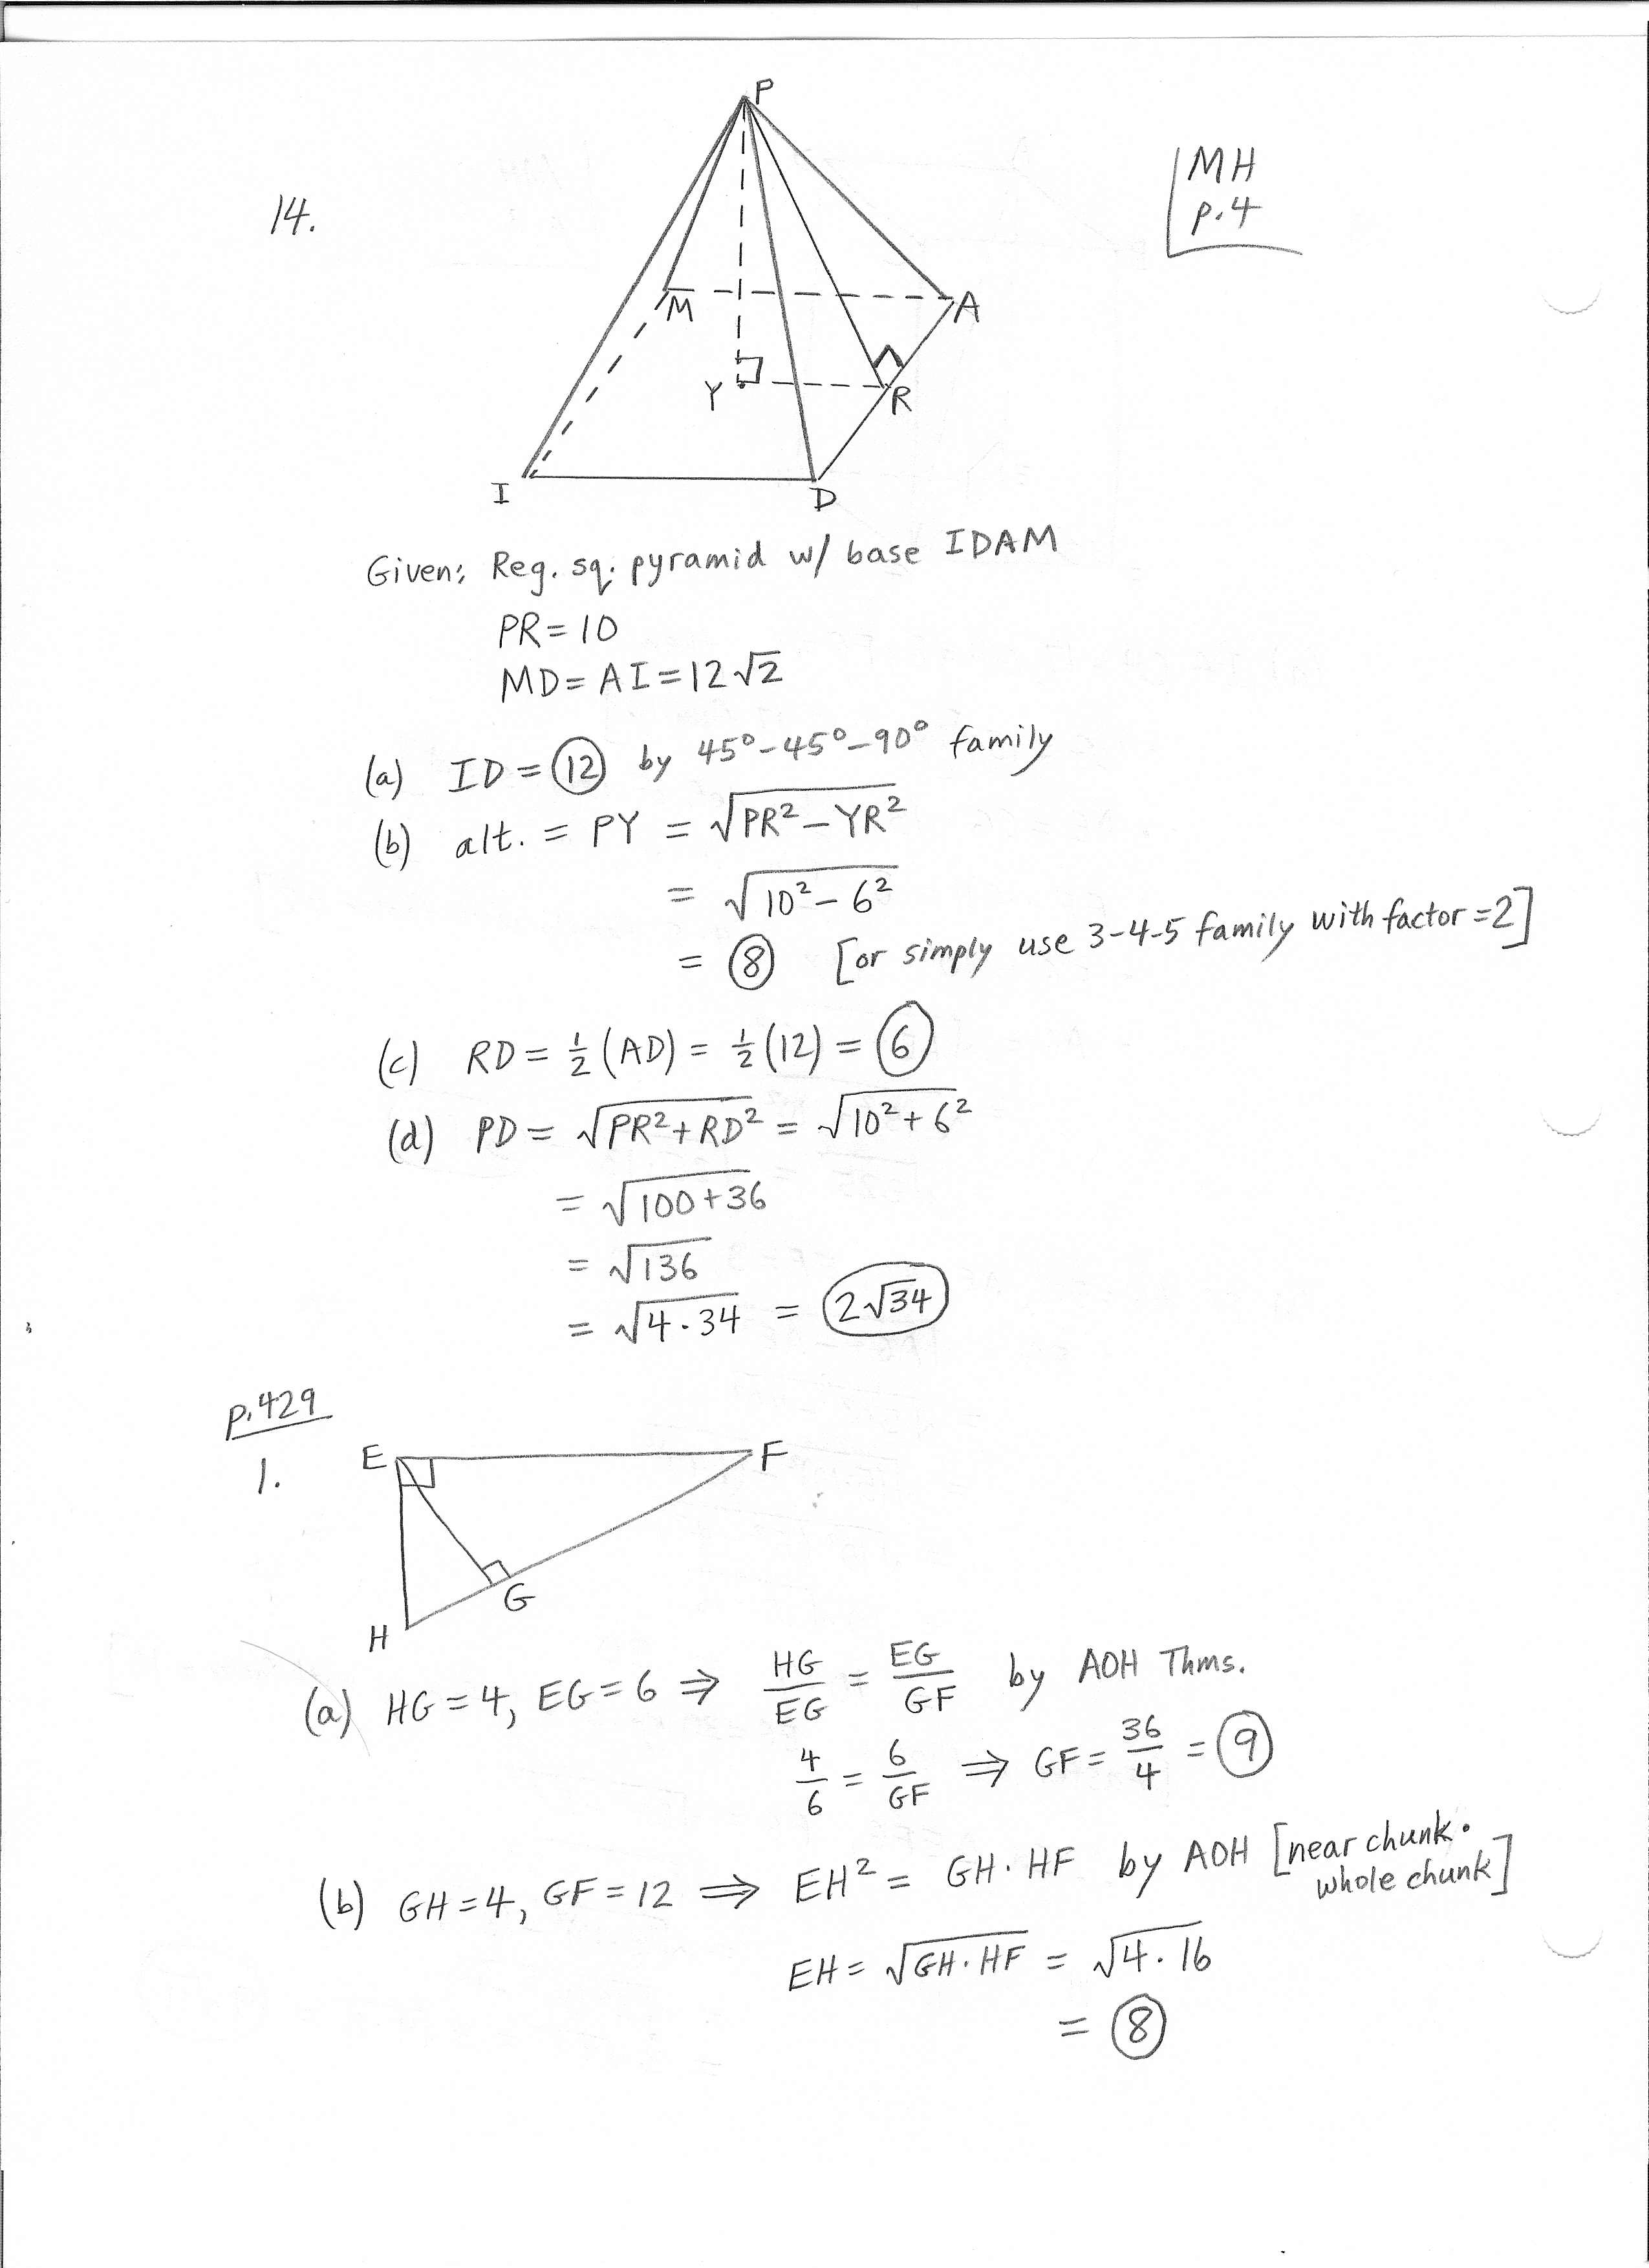 P
MH
p.4
14.
M
A
Y
R
I
D
Given: Reg. sq. pyramid w/ base IDAM
PR = 10
MD = AI = 12√2
(a) ID = 12 by 45°-45°-90° family
(b) alt. = PY = √PR² - YR²
= √10² - 6²
= 8 [or simply use 3-4-5 family with factor = 2]
(c) RD = ½ (AD) = ½ (12) = 6
(d) PD = √PR² + RD² = √10² + 6²
= √100 + 36
= √136
= √4 · 34 = 2√34
p.429
1.
E
F
G
H
(a) HG = 4, EG = 6 ⇒ HG/EG = EG/GF by AOH Thms.
4/6 = 6/GF ⇒ GF = 36/4 = 9
(b) GH = 4, GF = 12 ⇒ EH² = GH · HF by AOH [near chunk ·
whole chunk]
EH = √GH · HF = √4 · 16
= 8